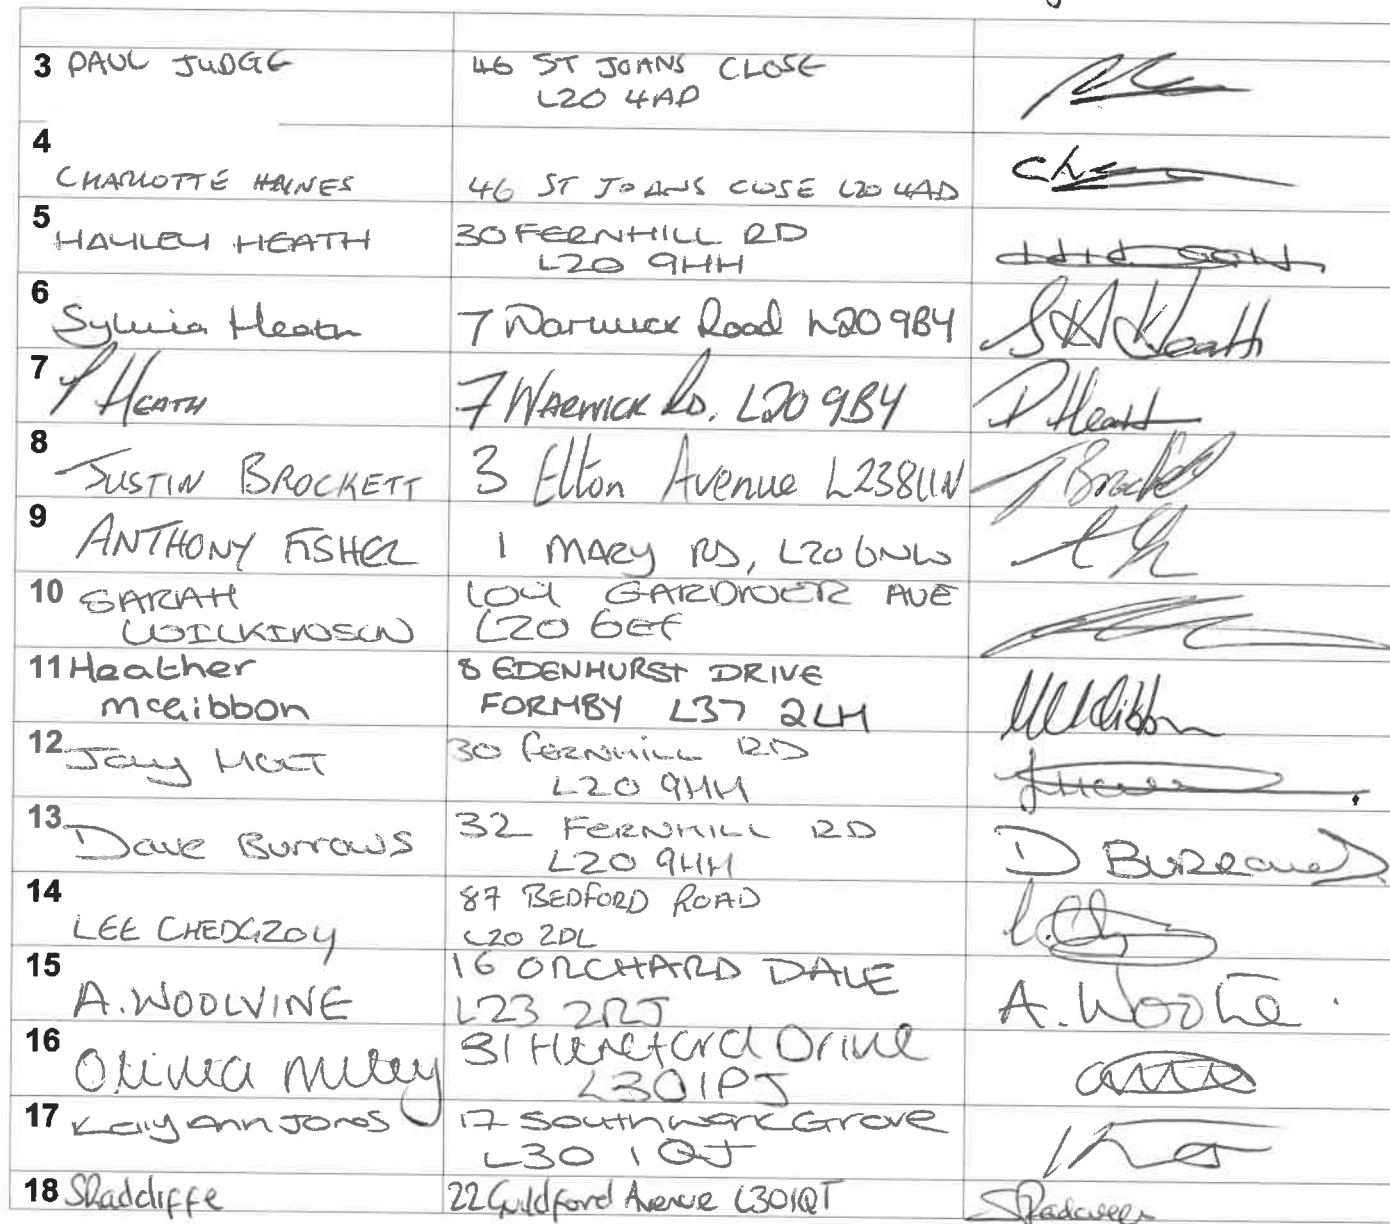 3 PAUL JUDGE 46 ST JOANS CLOSE
L20 4AD
4
CHARLOTTE HAINES 46 ST JOANS CLOSE L20 4AD
5 HAYLEY HEATH 30 FERNHILL RD
L20 9HH
6
Sylvia Heath 7 Warwick Road L20 9BY S Heath
7 P HEATH 7 WARWICK RD. L20 9BY P Heath
8
JUSTIN BROCKETT 3 Elton Avenue L23 8UN J Brockett
9 ANTHONY FISHER 1 MARY RD, L20 6NW
10 SARAH 104 GARDNER AVE
WILKINSON L20 6EF
11 Heather 8 EDENHURST DRIVE
McGibbon FORMBY L37 2LH
12 30 FERNHILL RD
L20 9HH
13 Dave Burrows 32 FERNHILL RD
L20 9HH D BURROWS
14 87 BEDFORD ROAD
LEE CHEDGZOY L20 2DL
15 16 ORCHARD DALE
A. WOOLVINE L23 2RJ A. Woo
16 Olivia 31 Hereford Drive
L30 1PJ
17 Kelly Ann Jones 17 Southwark Grove
L30 1QJ
18 SRadcliffe 22 Guildford Avenue L30 1QT SRadcliffe